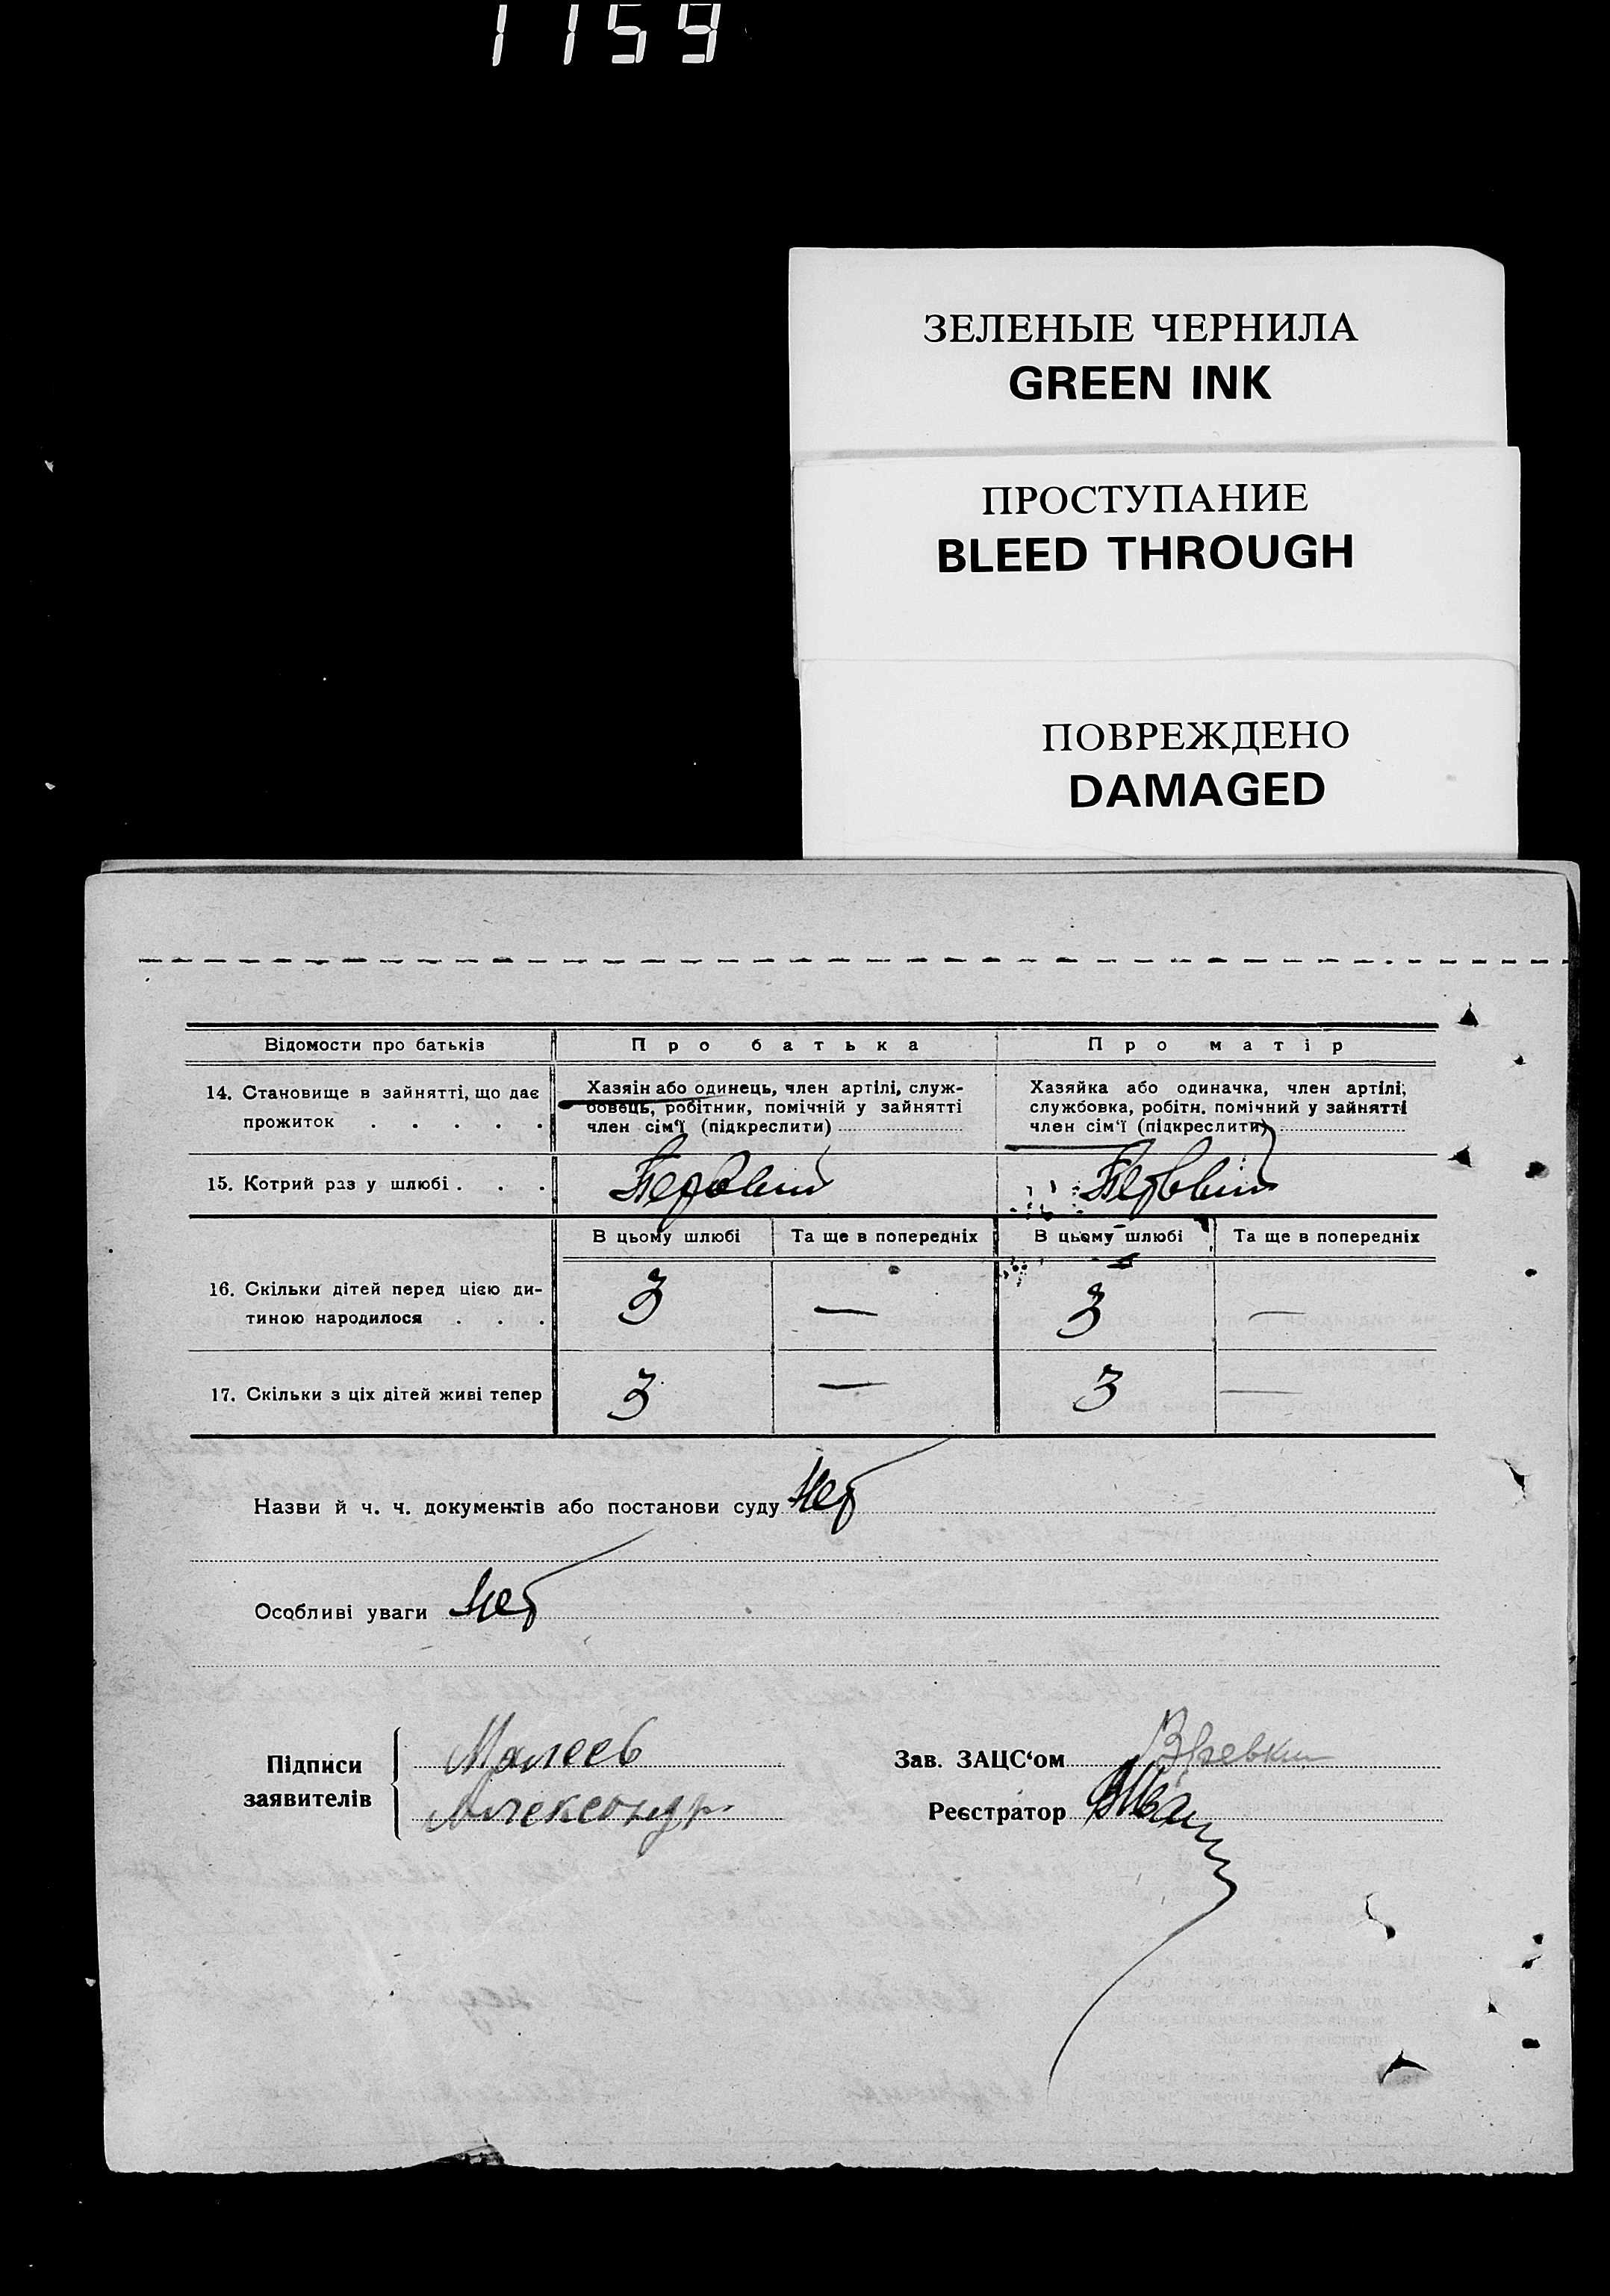 1159
ЗЕЛЕНЫЕ ЧЕРНИЛА
GREEN INK
ПРОСТУПАНИЕ
BLEED THROUGH
ПОВРЕЖДЕНО
DAMAGED
Відомости про батьків
Про батька
Про матір
14. Становище в зайнятті, що дає
прожиток . . . . .
Хазяін або одинець, член артілі, служ-
бовець, робітник, помічній у зайнятті
член сім'ї (підкреслити)
Хазяйка або одиначка, член артілі,
службовка, робітн. помічний у зайнятті
член сім'ї (підкреслити)
15. Котрий раз у шлюбі . . .
Первый
Первый
В цьому шлюбі
Та ще в попередніх
В цьому шлюбі
Та ще в попередніх
16. Скільки дітей перед цією ди-
тиною народилося . . .
3
—
3
—
17. Скільки з ціх дітей живі тепер
3
—
3
—
Назви й ч. ч. документів або постанови суду Нет
Особливі уваги Нет
Підписи
заявителів
Малеев
Александр
Зав. ЗАЦС'ом
Реєстратор